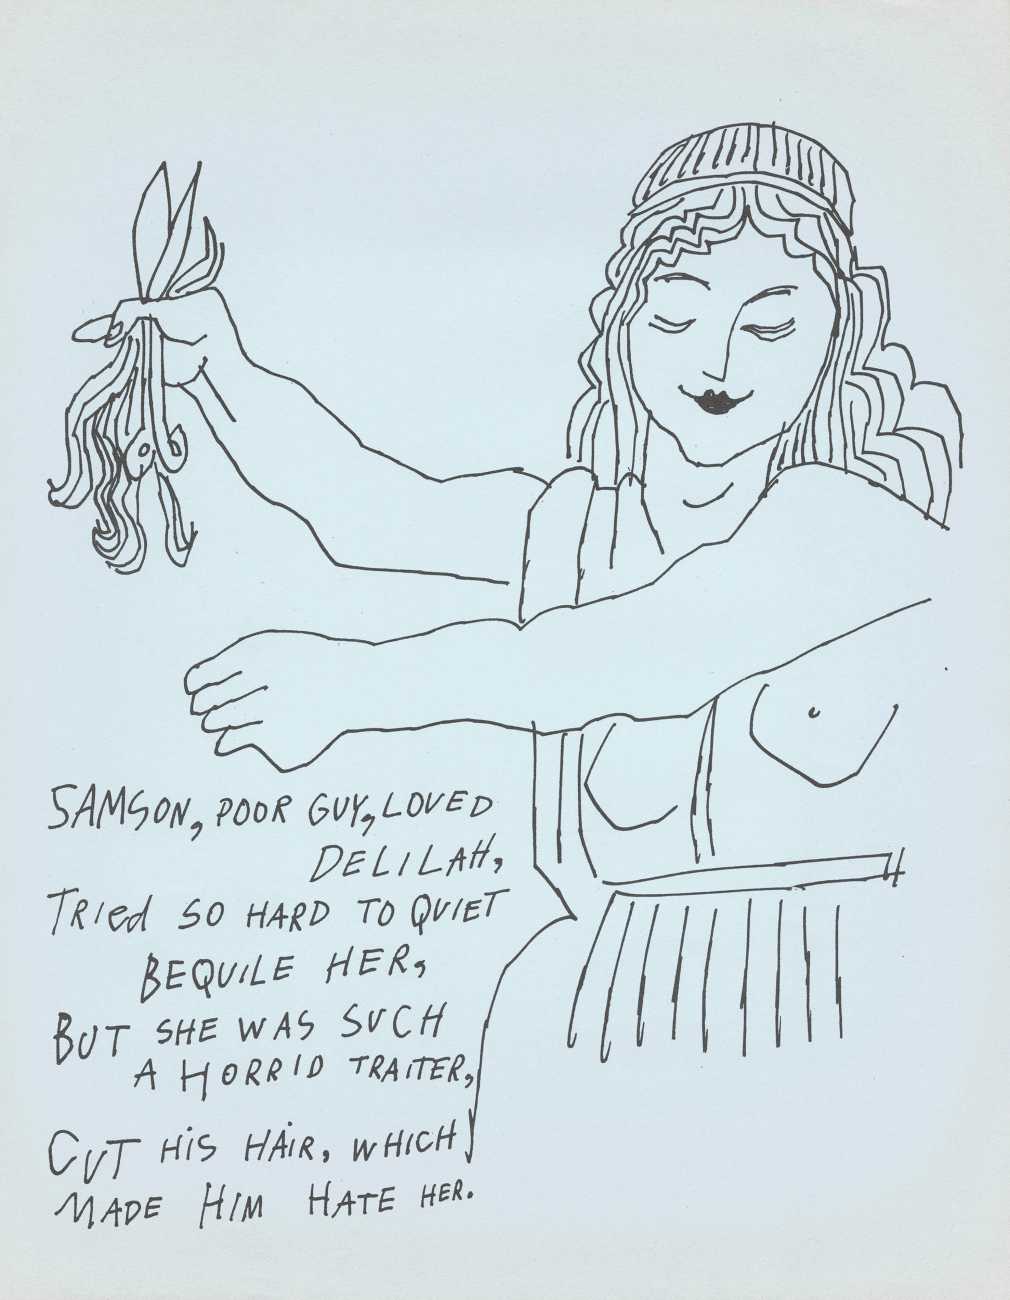 SAMSON, POOR GUY, LOVED
DELILAH,
TRied SO HARD TO QUIET
BEQUILE HER,
BUT SHE WAS SUCH
A HORRID TRAITER,
CUT HiS HAiR, WHICH
MADE HIM HATE HER.